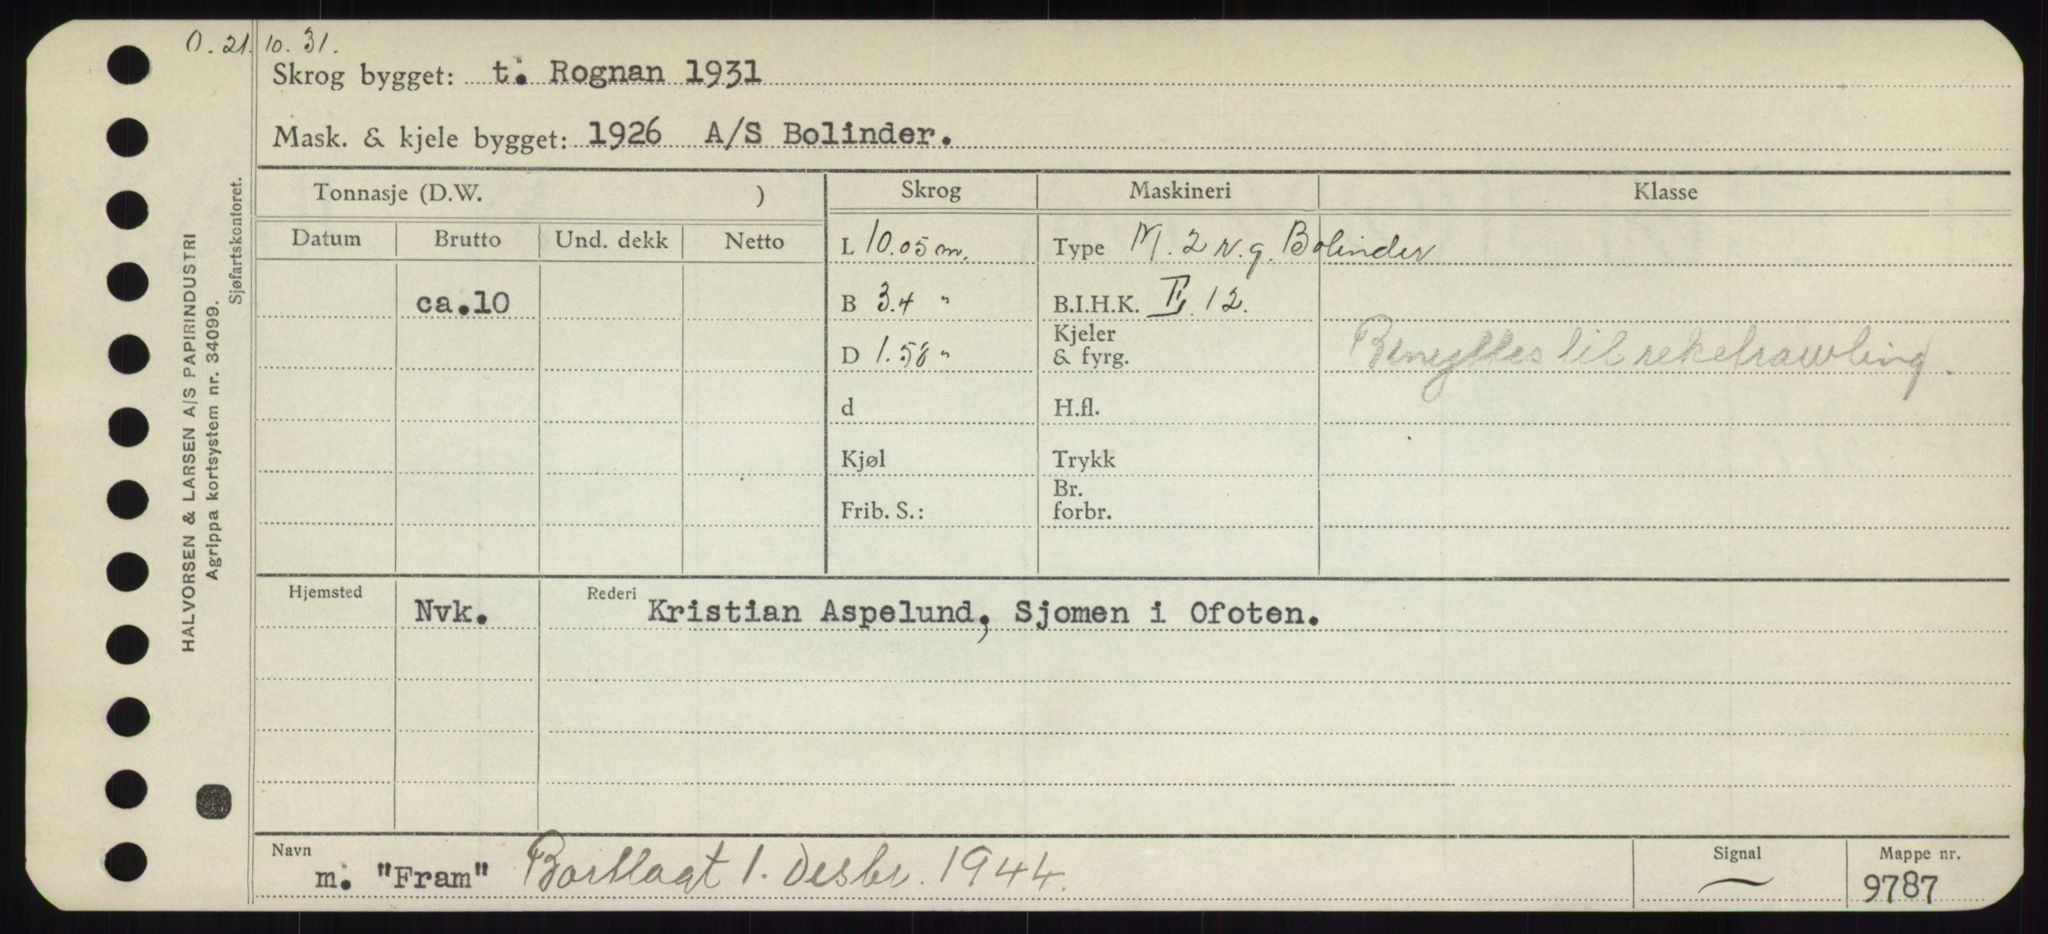 O. 21. 10. 31.
Skrog bygget: t. Rognan 1931
Mask. & kjele bygget: 1926 A/S Bolinder.
Tonnasje (D.W. )
Skrog
Maskineri
Klasse
Datum
Brutto
Und. dekk
Netto
L 10.05 m.
Type M. 2 v. g. Bolinder
ca.10
B 3.4 "
B.I.H.K. 12.
D 1.58 "
Kjeler
& fyrg.
Benyttes til reketrawling.
d
H.fl.
Kjøl
Trykk
Frib. S.:
Br.
forbr.
Hjemsted
Nvk.
Rederi
Kristian Aspelund, Sjomen i Ofoten.
Navn
m. "Fram" Bortlagt 1. Desbr. 1944.
Signal
Mappe nr.
9787
HALVORSEN & LARSEN A/S PAPIRINDUSTRI
Agrippa kortsystem nr. 34099.
Sjøfartskontoret.